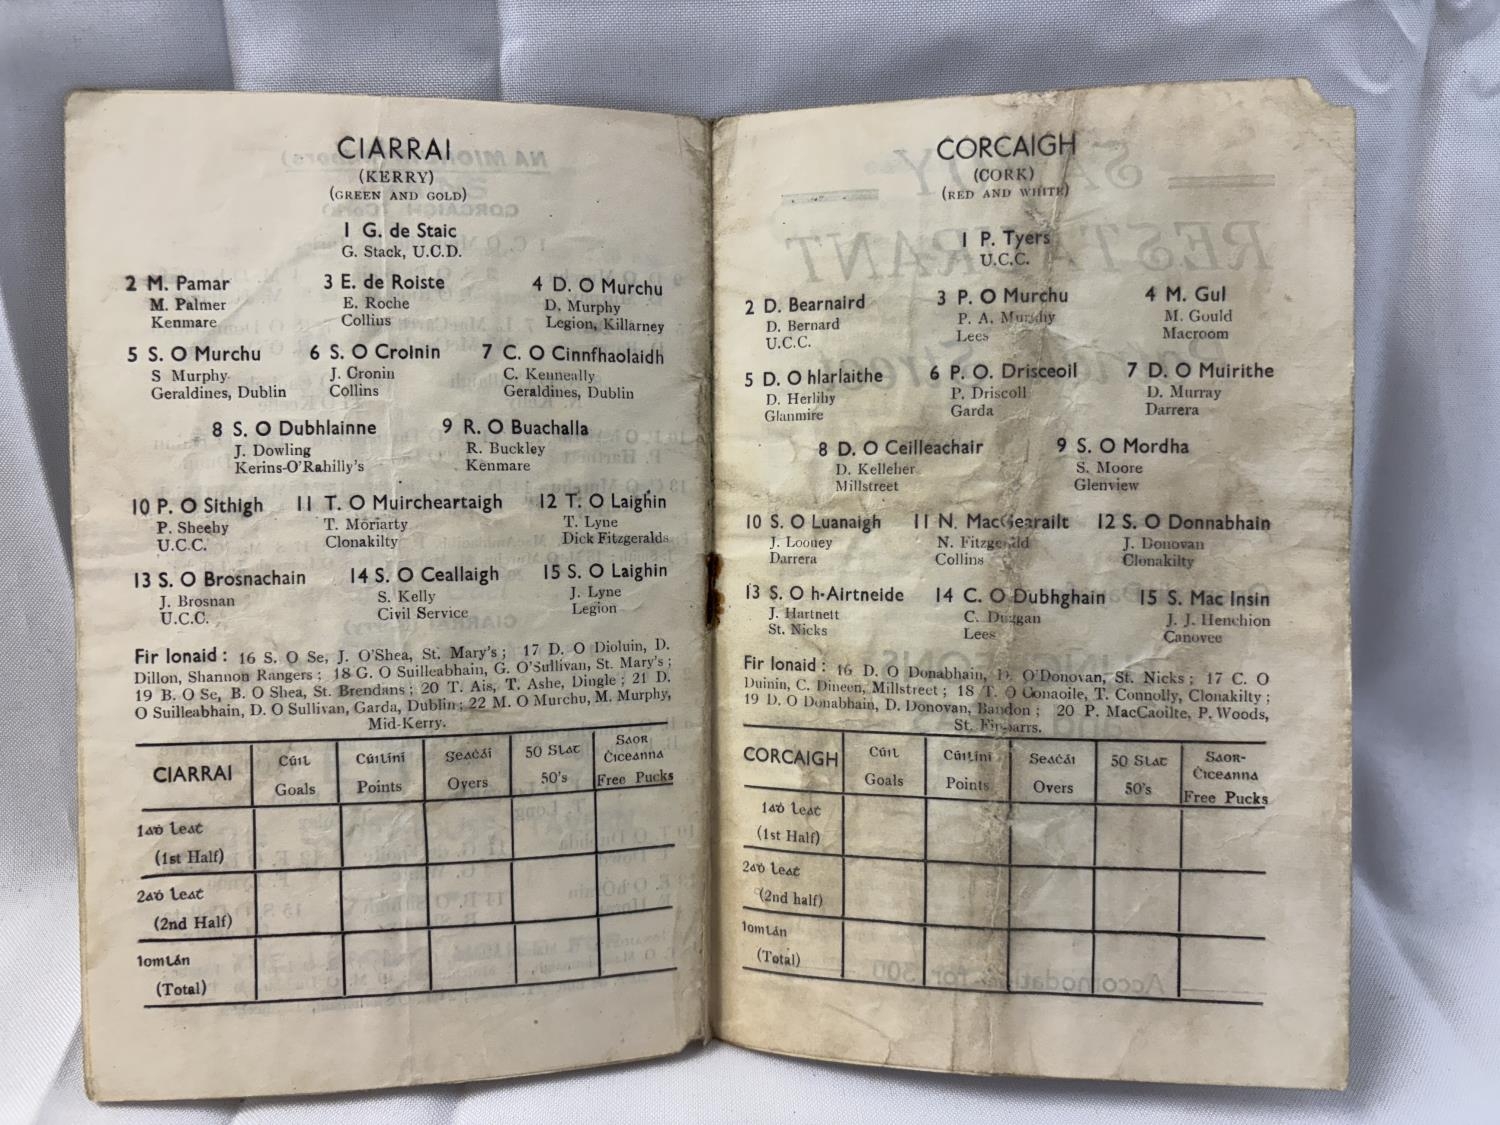 CIARRAI
(KERRY)
(GREEN AND GOLD)
1 G. de Staic
G. Stack, U.C.D.
2 M. Pamar 3 E. de Roiste 4 D. O Murchu
M. Palmer E. Roche D. Murphy
Kenmare Collins Legion, Killarney
5 S. O Murchu 6 S. O Croinin 7 C. O Cinnfhaolaidh
S Murphy J. Cronin C. Kenneally
Geraldines, Dublin Collins Geraldines, Dublin
8 S. O Dubhlainne 9 R. O Buachalla
J. Dowling R. Buckley
Kerins-O'Rahilly's Kenmare
10 P. O Sithigh 11 T. O Muircheartaigh 12 T. O Laighin
P. Sheehy T. Moriarty T. Lyne
U.C.C. Clonakilty Dick Fitzgeralds
13 S. O Brosnachain 14 S. O Ceallaigh 15 S. O Laighin
J. Brosnan S. Kelly J. Lyne
U.C.C. Civil Service Legion
Fir Ionaid : 16 S. O Se, J. O'Shea, St. Mary's ; 17 D. O Dioluin, D.
Dillon, Shannon Rangers ; 18 G. O Suilleabhain, G. O'Sullivan, St. Mary's ;
19 B. O Se, B. O Shea, St. Brendans ; 20 T. Ais, T. Ashe, Dingle ; 21 D.
O Suilleabhain, D. O Sullivan, Garda, Dublin ; 22 M. O Murchu, M. Murphy,
Mid-Kerry.
CIARRAI Cúil Cúilíní Seaċái 50 Slat Saor Ċiceanna
Goals Points Overs 50's Free Pucks
1aḋ Leat
(1st Half)
2aḋ Leat
(2nd Half)
Iomlán
(Total)
CORCAIGH
(CORK)
(RED AND WHITE)
1 P. Tyers
U.C.C.
2 D. Bearnaird 3 P. O Murchu 4 M. Gul
D. Bernard P. A. Murphy M. Gould
U.C.C. Lees Macroom
5 D. O hIarlaithe 6 P. O. Drisceoil 7 D. O Muirithe
D. Herlihy P. Driscoll D. Murray
Glanmire Garda Darrera
8 D. O Ceilleachair 9 S. O Mordha
D. Kelleher S. Moore
Millstreet Glenview
10 S. O Luanaigh 11 N. MacGearailt 12 S. O Donnabhain
J. Looney N. Fitzgerald J. Donovan
Darrera Collins Clonakilty
13 S. O h-Airtneide 14 C. O Dubhghain 15 S. Mac Insin
J. Hartnett C. Duggan J. J. Henchion
St. Nicks Lees Canovee
Fir Ionaid : 16 D. O Donabhain, D. O'Donovan, St. Nicks ; 17 C. O
Duinin, C. Dineen, Millstreet ; 18 T. O Conaoile, T. Connolly, Clonakilty ;
19 D. O Donabhain, D. Donovan, Bandon ; 20 P. MacCaoilte, P. Woods,
St. Finbarrs.
CORCAIGH Cúil Cúilíní Seaċái 50 Slat Saor-Ċiceanna
Goals Points Overs 50's Free Pucks
1aḋ Leat
(1st Half)
2aḋ Leat
(2nd half)
Iomlán
(Total)